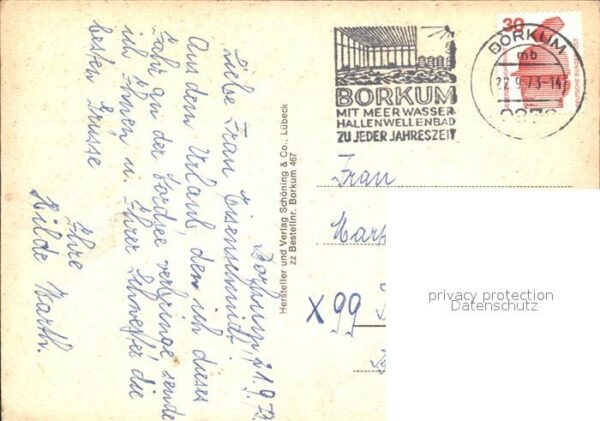 Borkum, 21.9.73
Liebe Frau Eisenschmidt!
Aus dem Urlaub, den ich dieses
Jahr an der Nordsee verbringe sende
ich Ihnen u. Ihrer Schwester die
besten Grüsse
Ihre
Hilde Warth.
Hersteller und Verlag Schöning & Co., Lübeck
zz Bestellnr. Borkum 467
BORKUM
MIT MEERWASSER
HALLENWELLENBAD
ZU JEDER JAHRESZEIT
BORKUM
mb
22.9.73-14
30
DEUTSCHE BUNDESPOST
Frau
X 99
privacy protection
Datenschutz